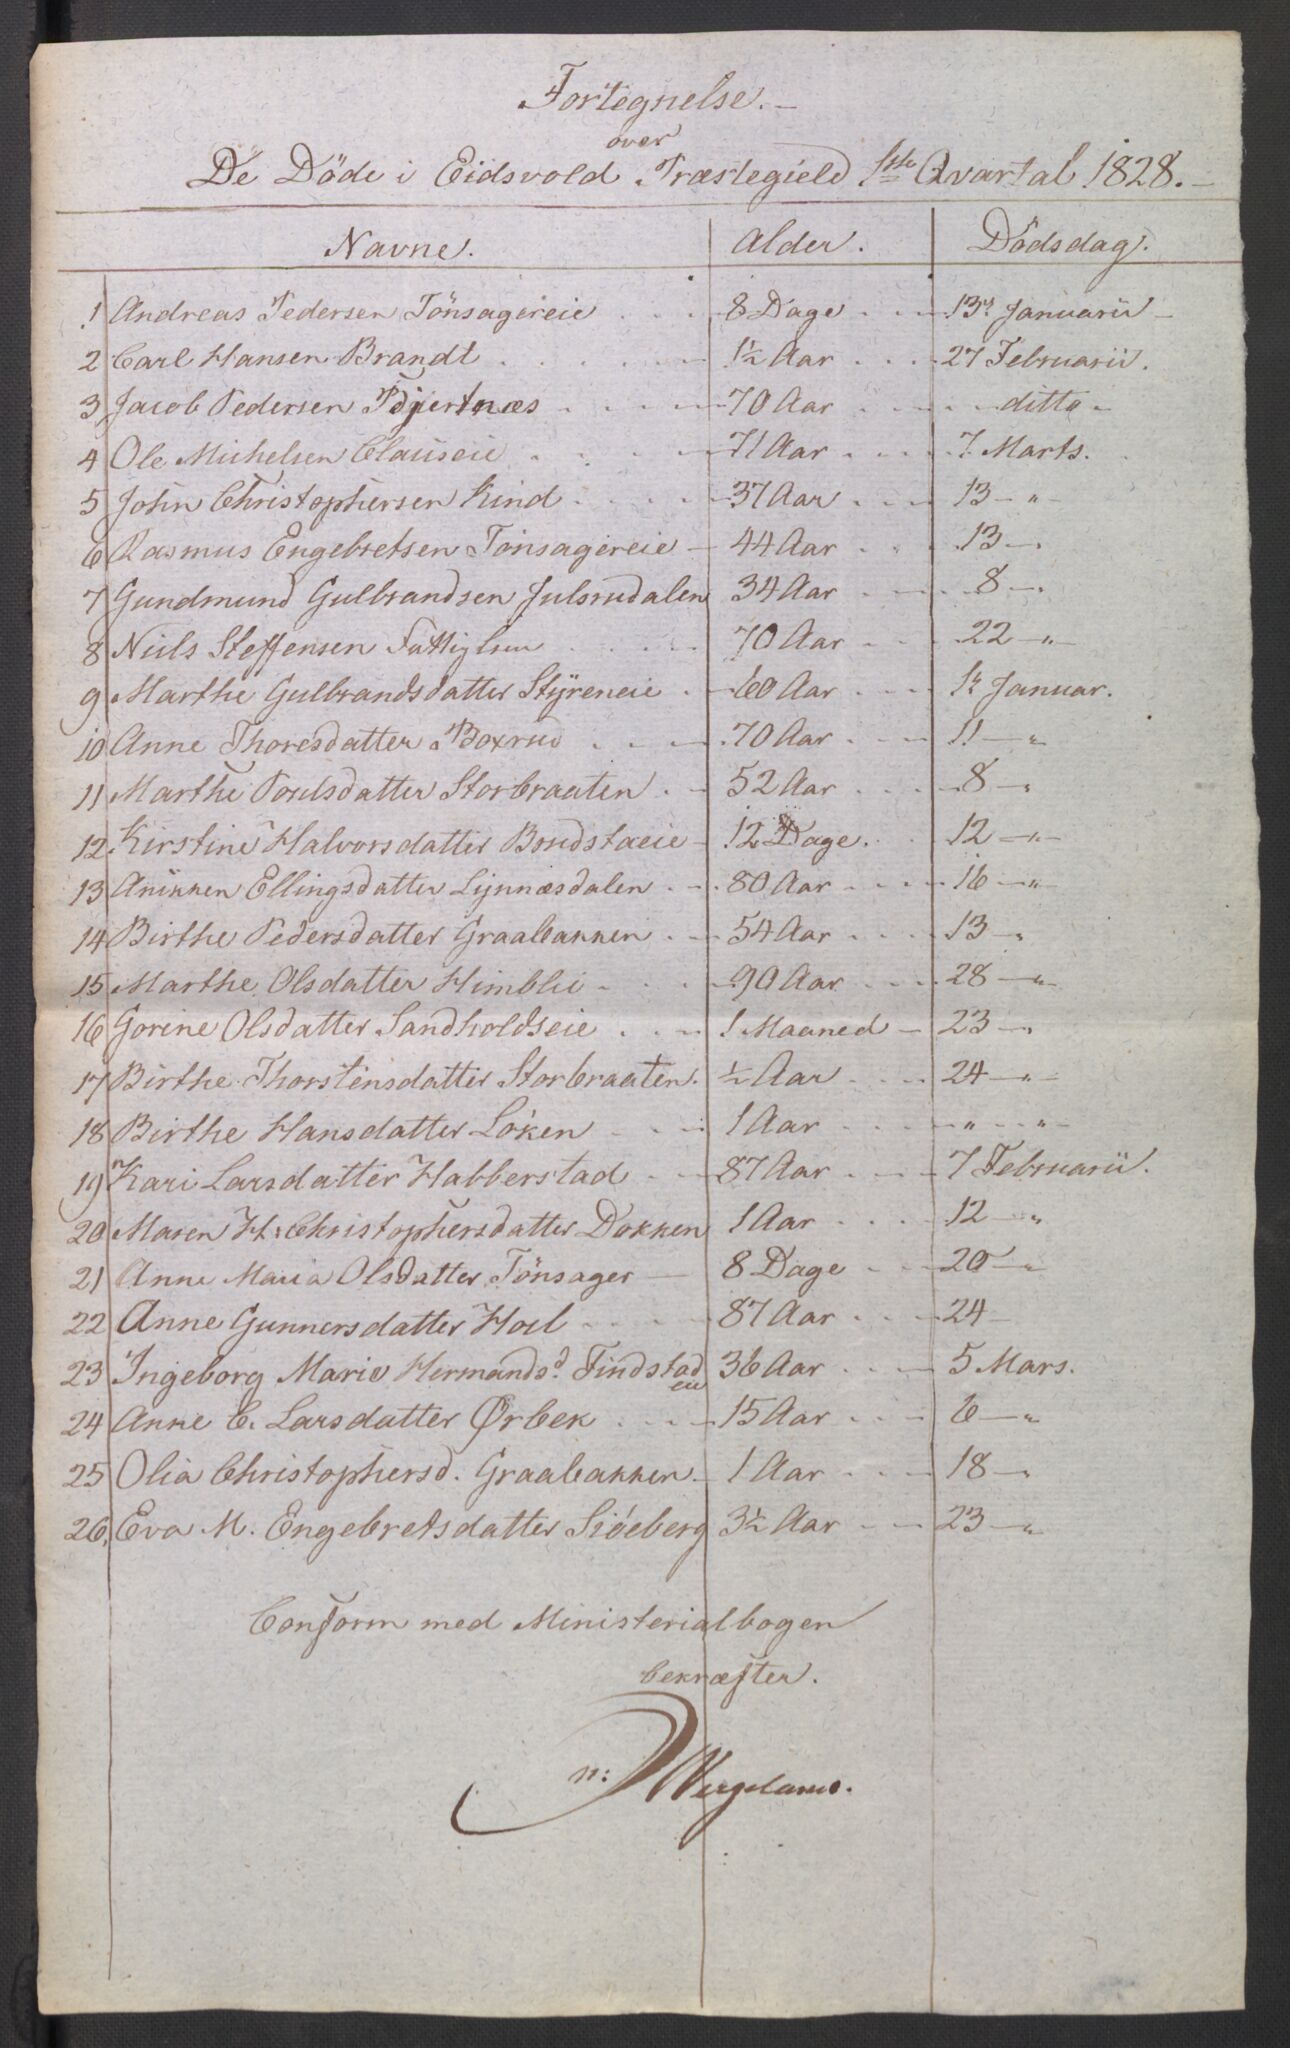 Fortegnelse.
over
De Döde i Eidsvold Præstegield 1ste Qvartal 1828.
Navne. Alder. Dödsdag.
1 Andreas Pedersen Tönsagereie 8 Dage 13de Januarii
2 Carl Hansen Brandt 1½ Aar 27 Februarii.
3 Jacob Pedersen 70 Aar ditto
4 Ole Michelsen Clauseie 71 Aar 7 Marts.
5 John Christophersen Kind 37 Aar 13 — "
6 Rasmus Engebretsen Tönsagereie 44 Aar 13 — "
7 Gundmund Gulbrandsen Julsrudalen 34 Aar 8 — "
8 Niels Steffensen Fattiglem 70 Aar 22 — "
9 Marthe Gulbrandsdatter Styreneie 60 Aar 1ste Januar.
10 Anne Thoresdatter Boxrud 70 Aar 11 — "
11 Marthe Poulsdatter Storbraaten 52 Aar 8 — "
12 Kirstine Halvorsdatter Brudstaeie 12 Dage. 12 — "
13 Anikken Ellingsdatter Lynnæsdalen 80 Aar 16 — "
14 Birthe Pedersdatter Graabakken 54 Aar 13 — "
15 Marthe Olsdatter Himblie 90 Aar 28 — "
16 Gorine Olsdatter Sandholdseie 1 Maaned 23 — "
17 Birthe Thorstensdatter Storbraaten. ½ Aar 24 — "
18 Birthe Hansdatter Löken 1 Aar " — "
19 Kari Larsdatter Habberstad 87 Aar 7 Februarii.
20 Maren H: Christophersdatter Dokken 1 Aar 12 — "
21 Anne Maria Olsdatter Tönsager 8 Dage 20 — "
22 Anne Gunnersdatter Hoel 87 Aar 24 —
23 Ingeborg Marie Hermandsd. Findstad 36 Aar 5 Mars.
eie
24 Anne C. Larsdatter Ørbek 15 Aar 6 — "
25 Olia Christophersd. Graabakken. 1 Aar 18 — "
26, Eva M. Engebretsdatter Siöeberg 3½ Aar 23 — "
Conform med Ministerialbogen
bekræfter.
n: Wergeland.